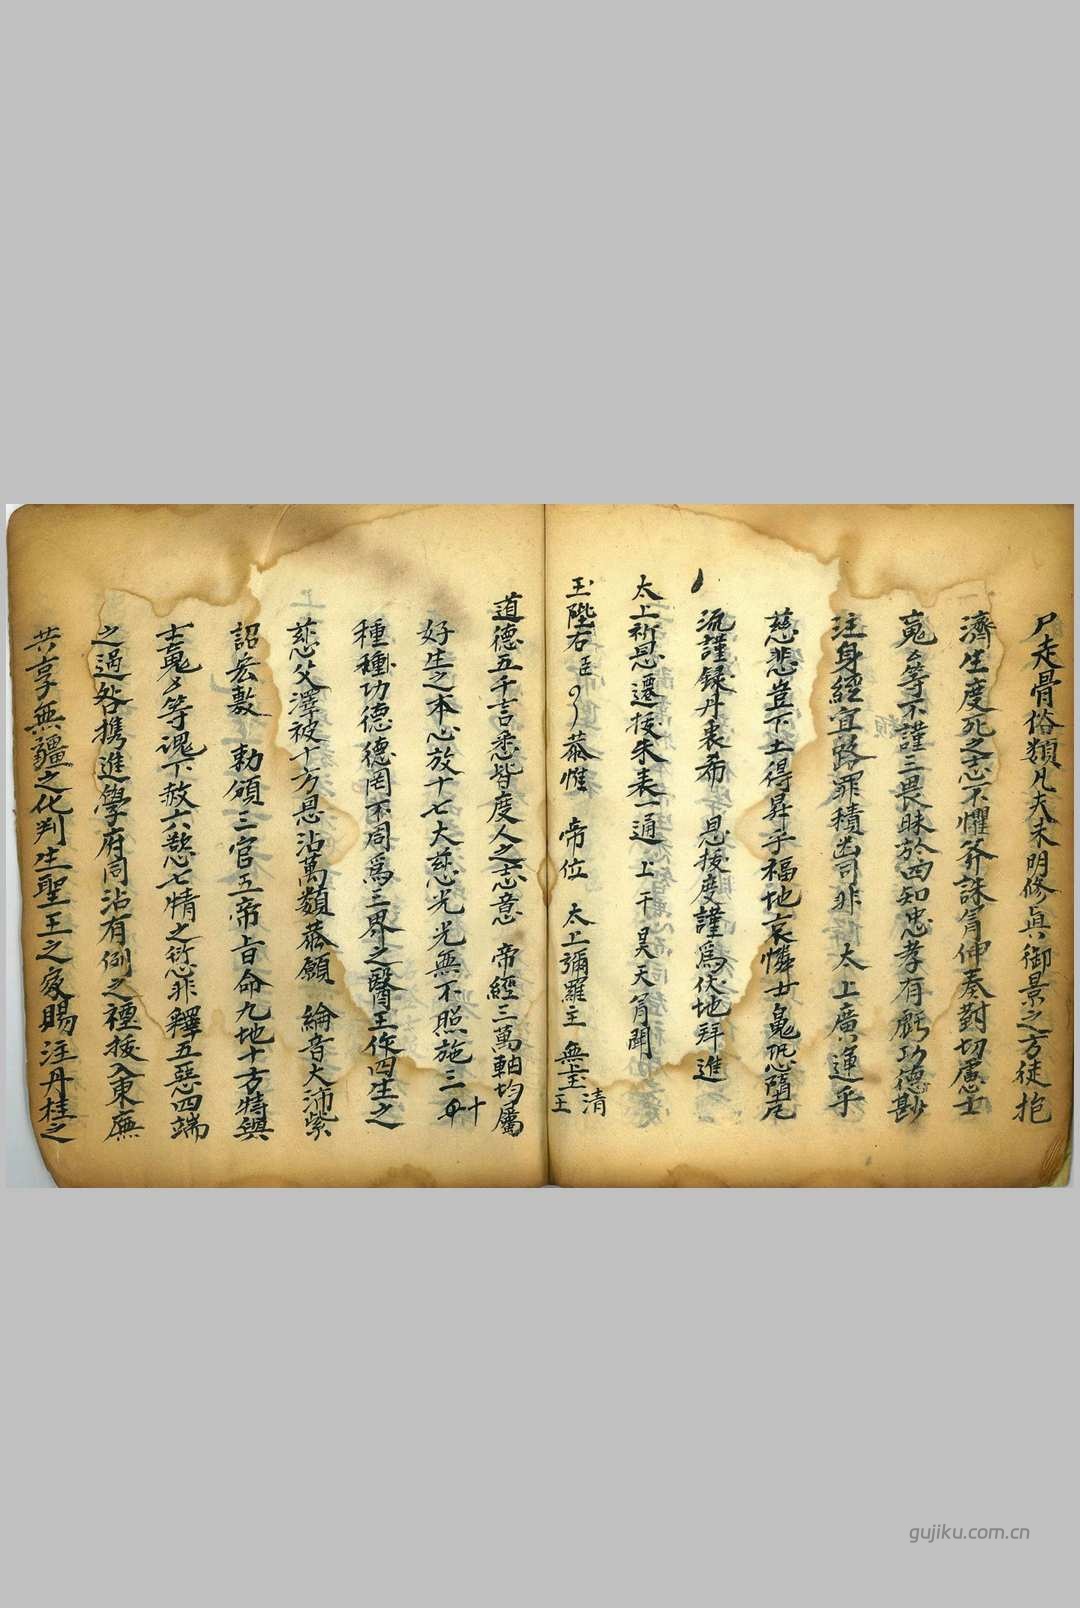 尸走骨俗類凡夫未明修眞御景之方徒抱
濟生度死之志不懼斧誅肯伸奏對切慮士
䰟〻等不謹三畏昧於四知忠孝有虧功德尠
注身經宜路罪積幽司非 太上廣運乎
慈悲豈下土得昇乎福地哀憐士䰟恐墮尾
流謹録丹表希 恩拔度謹爲伏地拜進
太上祈恩遷拔朱表一通 上干昊天肯聞
玉陛右臣 恭惟 帝位 太上彌羅主 無玉清王
道德五千言悉皆度人之志意 帝經三萬軸均屬
好生之本心放十七大慈光光無不照施三十
種種功德德罔不周爲三界之醫王作四生之
慈父澤被十方恩沾萬類恭願 綸音大沛紫
詔宏敷 勅頒三官五帝旨命九地十方特與
士䰟〻等魂下赦六慾七情之愆非釋五惡四端
之過咎携進學府同沾有例之禋接入東廡
共享無疆之化判生聖王之家賜注丹桂之
gujiku.com.cn